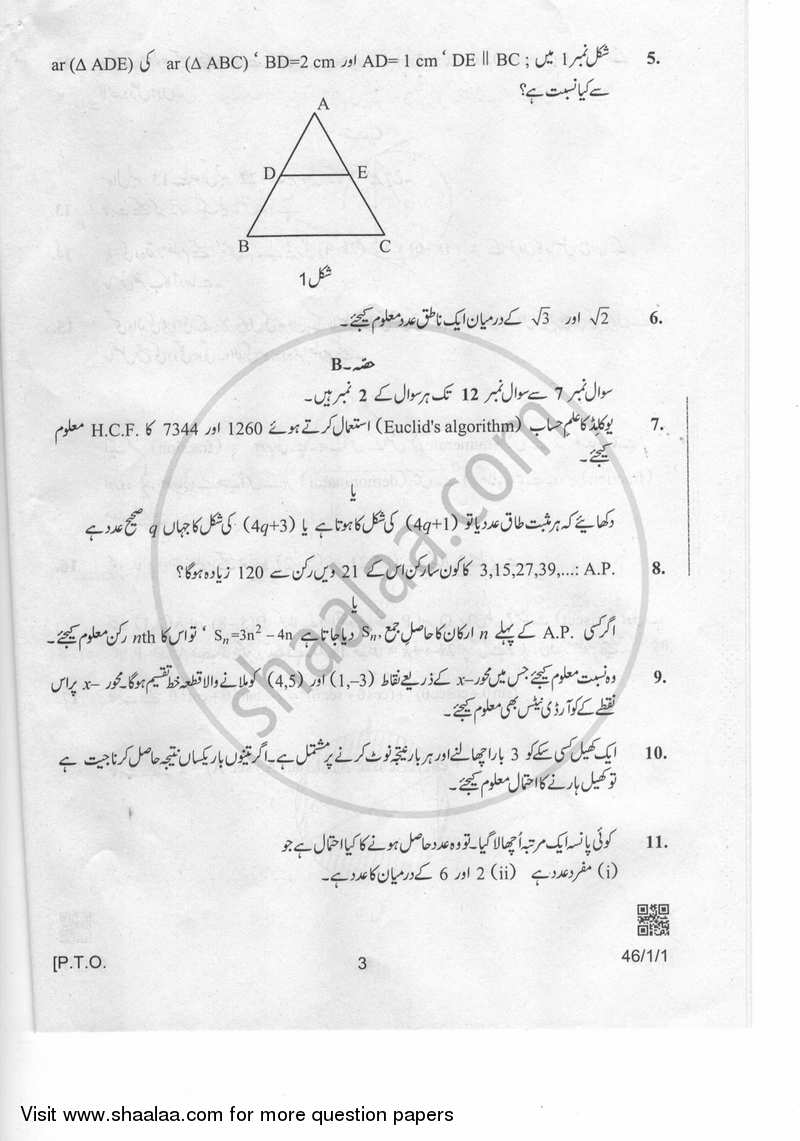 5. شکل نمبر 1 میں ; DE || BC ‘ AD= 1 cm اور BD=2 cm ‘ ar (Δ ABC) کی ar (Δ ADE)
سے کیا نسبت ہے؟
A
D
E
B
C
شکل 1
6. √2 اور √3 کے درمیان ایک ناطق عدد معلوم کیجئے۔
حصّہ۔B
سوال نمبر 7 سے سوال نمبر 12 تک ہر سوال کے 2 نمبر ہیں۔
7. یوکلڈ کا علمِ حساب (Euclid's algorithm) استعمال کرتے ہوئے 1260 اور 7344 کا H.C.F. معلوم
کیجئے۔
یا
دکھائیے کہ ہر مثبت طاق عدد یا تو (4q+1) کی شکل کا ہوتا ہے یا (4q+3) کی شکل کا جہاں q صحیح عدد ہے
8. A.P. :3,15,27,39,... کا کون سا رکن اس کے 21 ویں رکن سے 120 زیادہ ہوگا؟
یا
اگر کسی A.P. کے پہلے n ارکان کا حاصل جمع، Sn دیا جاتا ہے Sn=3n² – 4n ‘ تو اس کا nth رکن معلوم کیجئے۔
9. وہ نسبت معلوم کیجئے جس میں محور–x کے ذریعے نقاط (1,–3) اور (4,5) کو ملانے والا قطعہ خط تقسیم ہوگا۔ محور–x پر اس
نقطے کے کوآرڈی نیٹس بھی معلوم کیجئے۔
10. ایک کھیل کسی سکے کو 3 بار اچھالنے اور ہر بار نتیجہ نوٹ کرنے پر مشتمل ہے۔ اگر تینوں بار یکساں نتیجہ حاصل کرنا جیت ہے
تو کھیل ہارنے کا احتمال معلوم کیجئے۔
11. کوئی پانسہ ایک مرتبہ اُچھالا گیا۔ تو وہ عدد حاصل ہونے کا کیا احتمال ہے جو
(i) مفرد عدد ہے (ii) 2 اور 6 کے درمیان کا عدد ہے۔
[P.T.O.
3
46/1/1
shaalaa.com
Visit www.shaalaa.com for more question papers